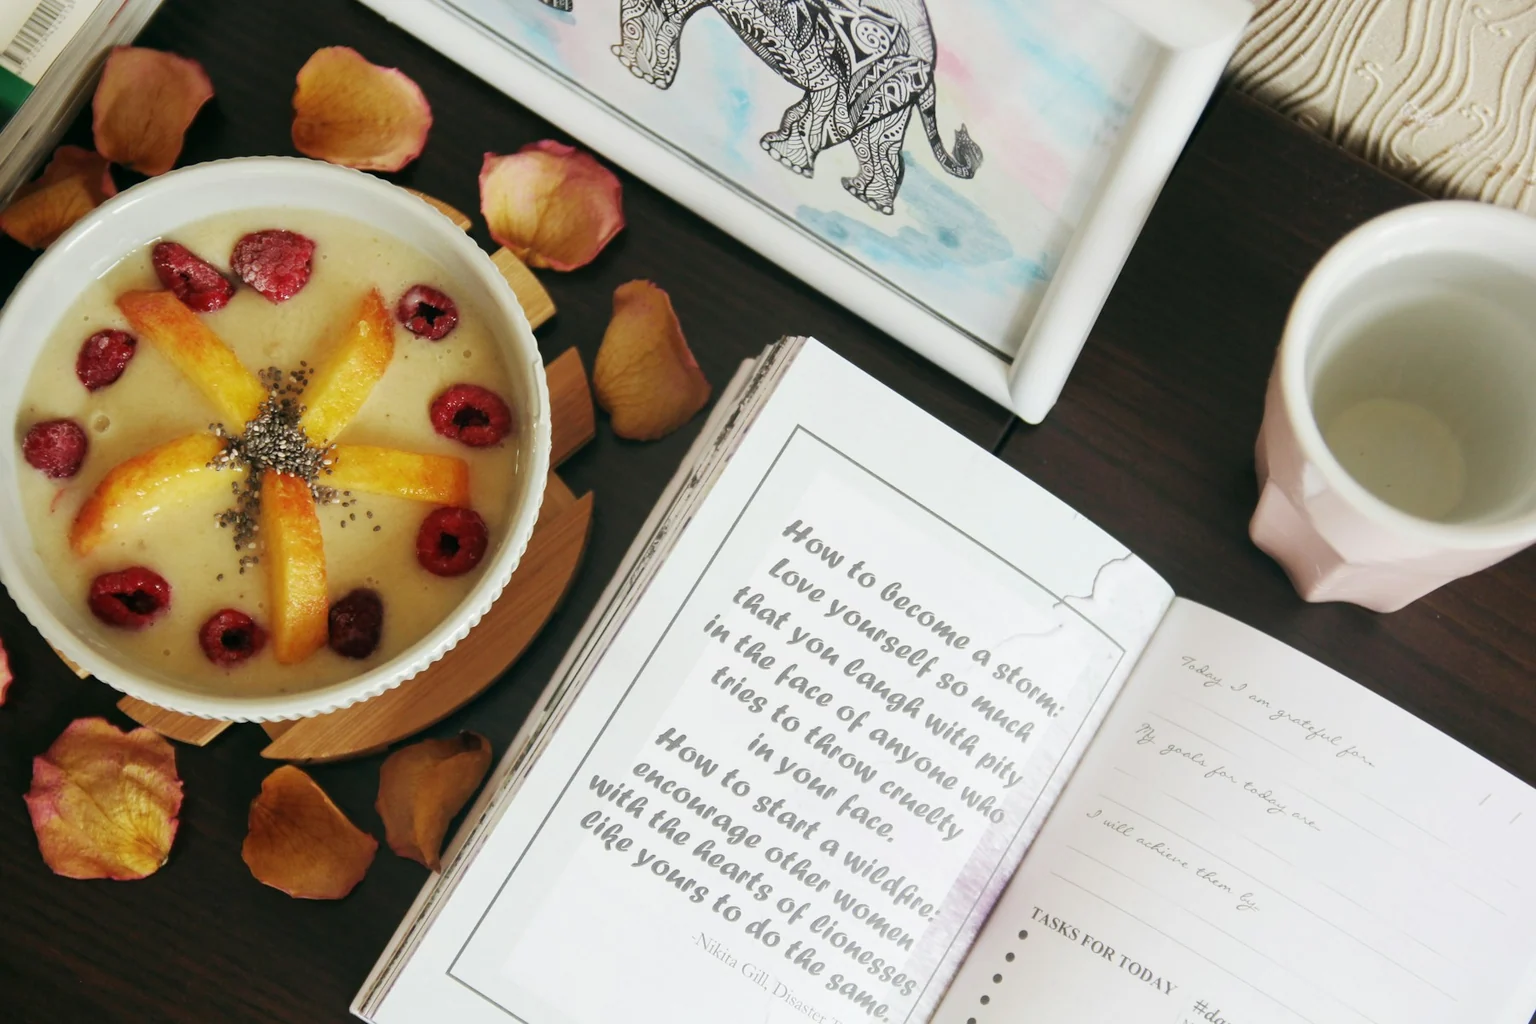 How to become a storm:
Love yourself so much
that you laugh with pity
in the face of anyone who
tries to throw cruelty
in your face.
How to start a wildfire:
encourage other women
with the hearts of lionesses
like yours to do the same.
-Nikita Gill, Disaster
Today I am grateful for:
My goals for today are:
I will achieve them by:
TASKS FOR TODAY